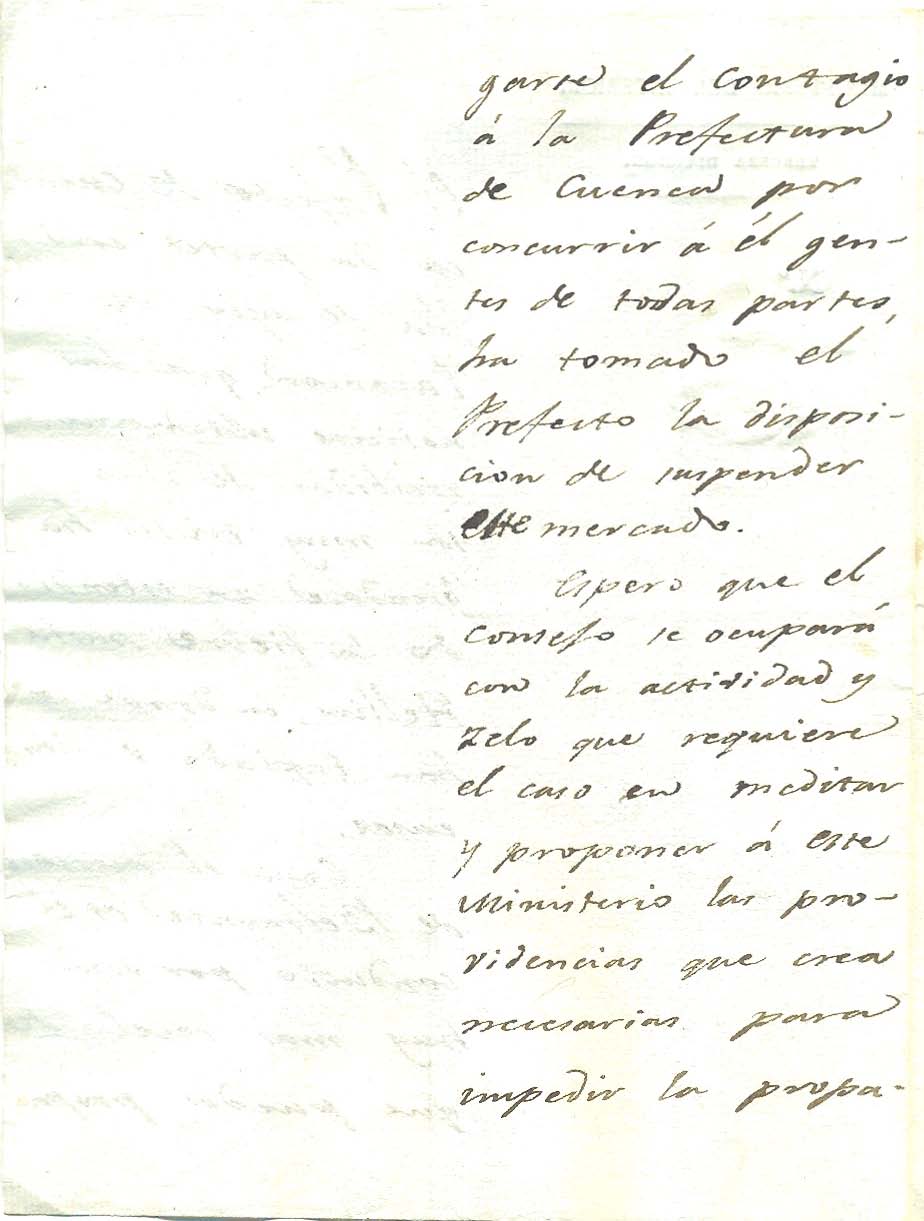 garse el Contagio
á la Prefectura
de Cuenca por
concurrir á él gen-
tes de todas partes,
ha tomado el
Prefecto la disposi-
cion de suspender
este mercado.
Espero que el
Consejo se ocupará
con la actividad y
zelo que requiere
el caso en meditar
y proponer á este
Ministerio las pro-
videncias que crea
necesarias para
impedir la propa-